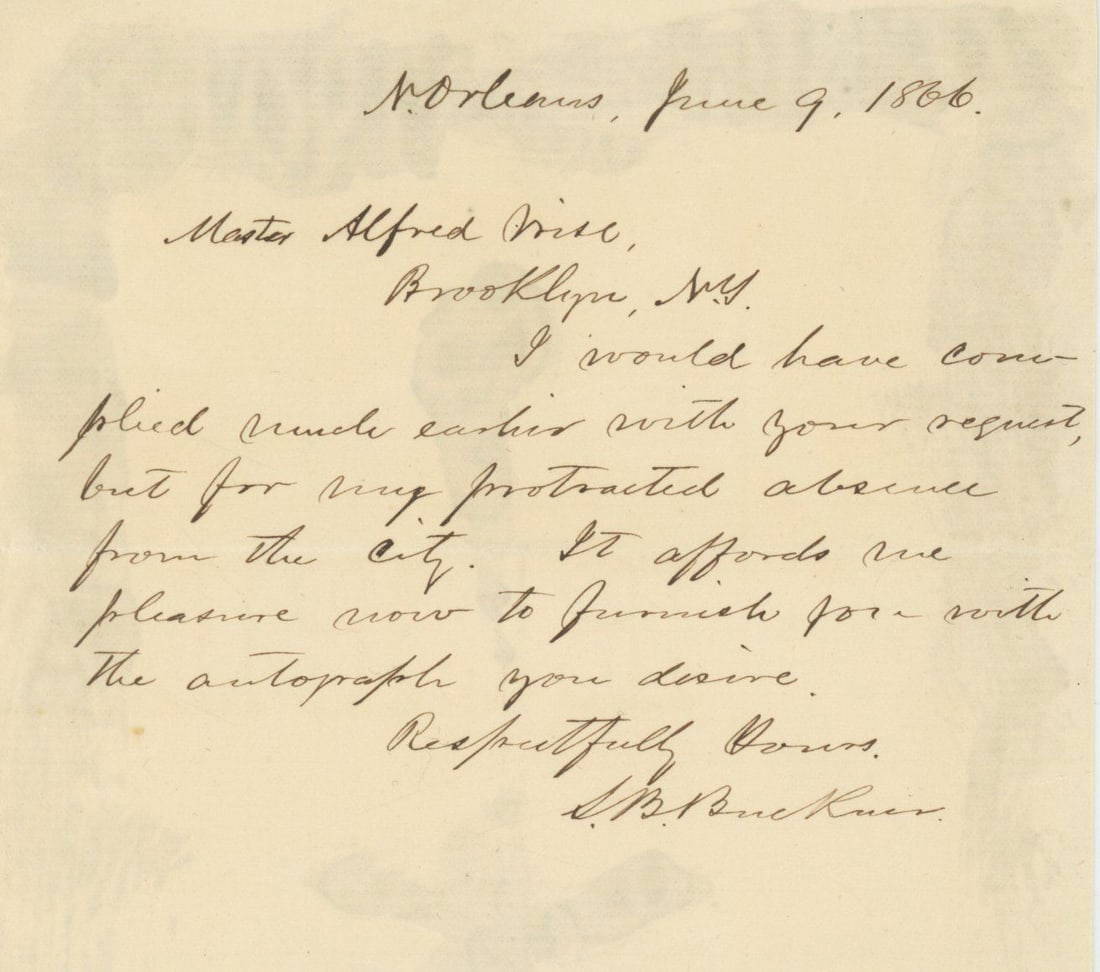 N. Orleans, June 9, 1866.
Master Alfred Wise,
Brooklyn, N.Y.
I would have com-
plied much earlier with your request,
but for my protracted absence
from the city. It affords me
pleasure now to furnish you with
the autograph you desire.
Respectfully Yours.
S. B. Buckner.